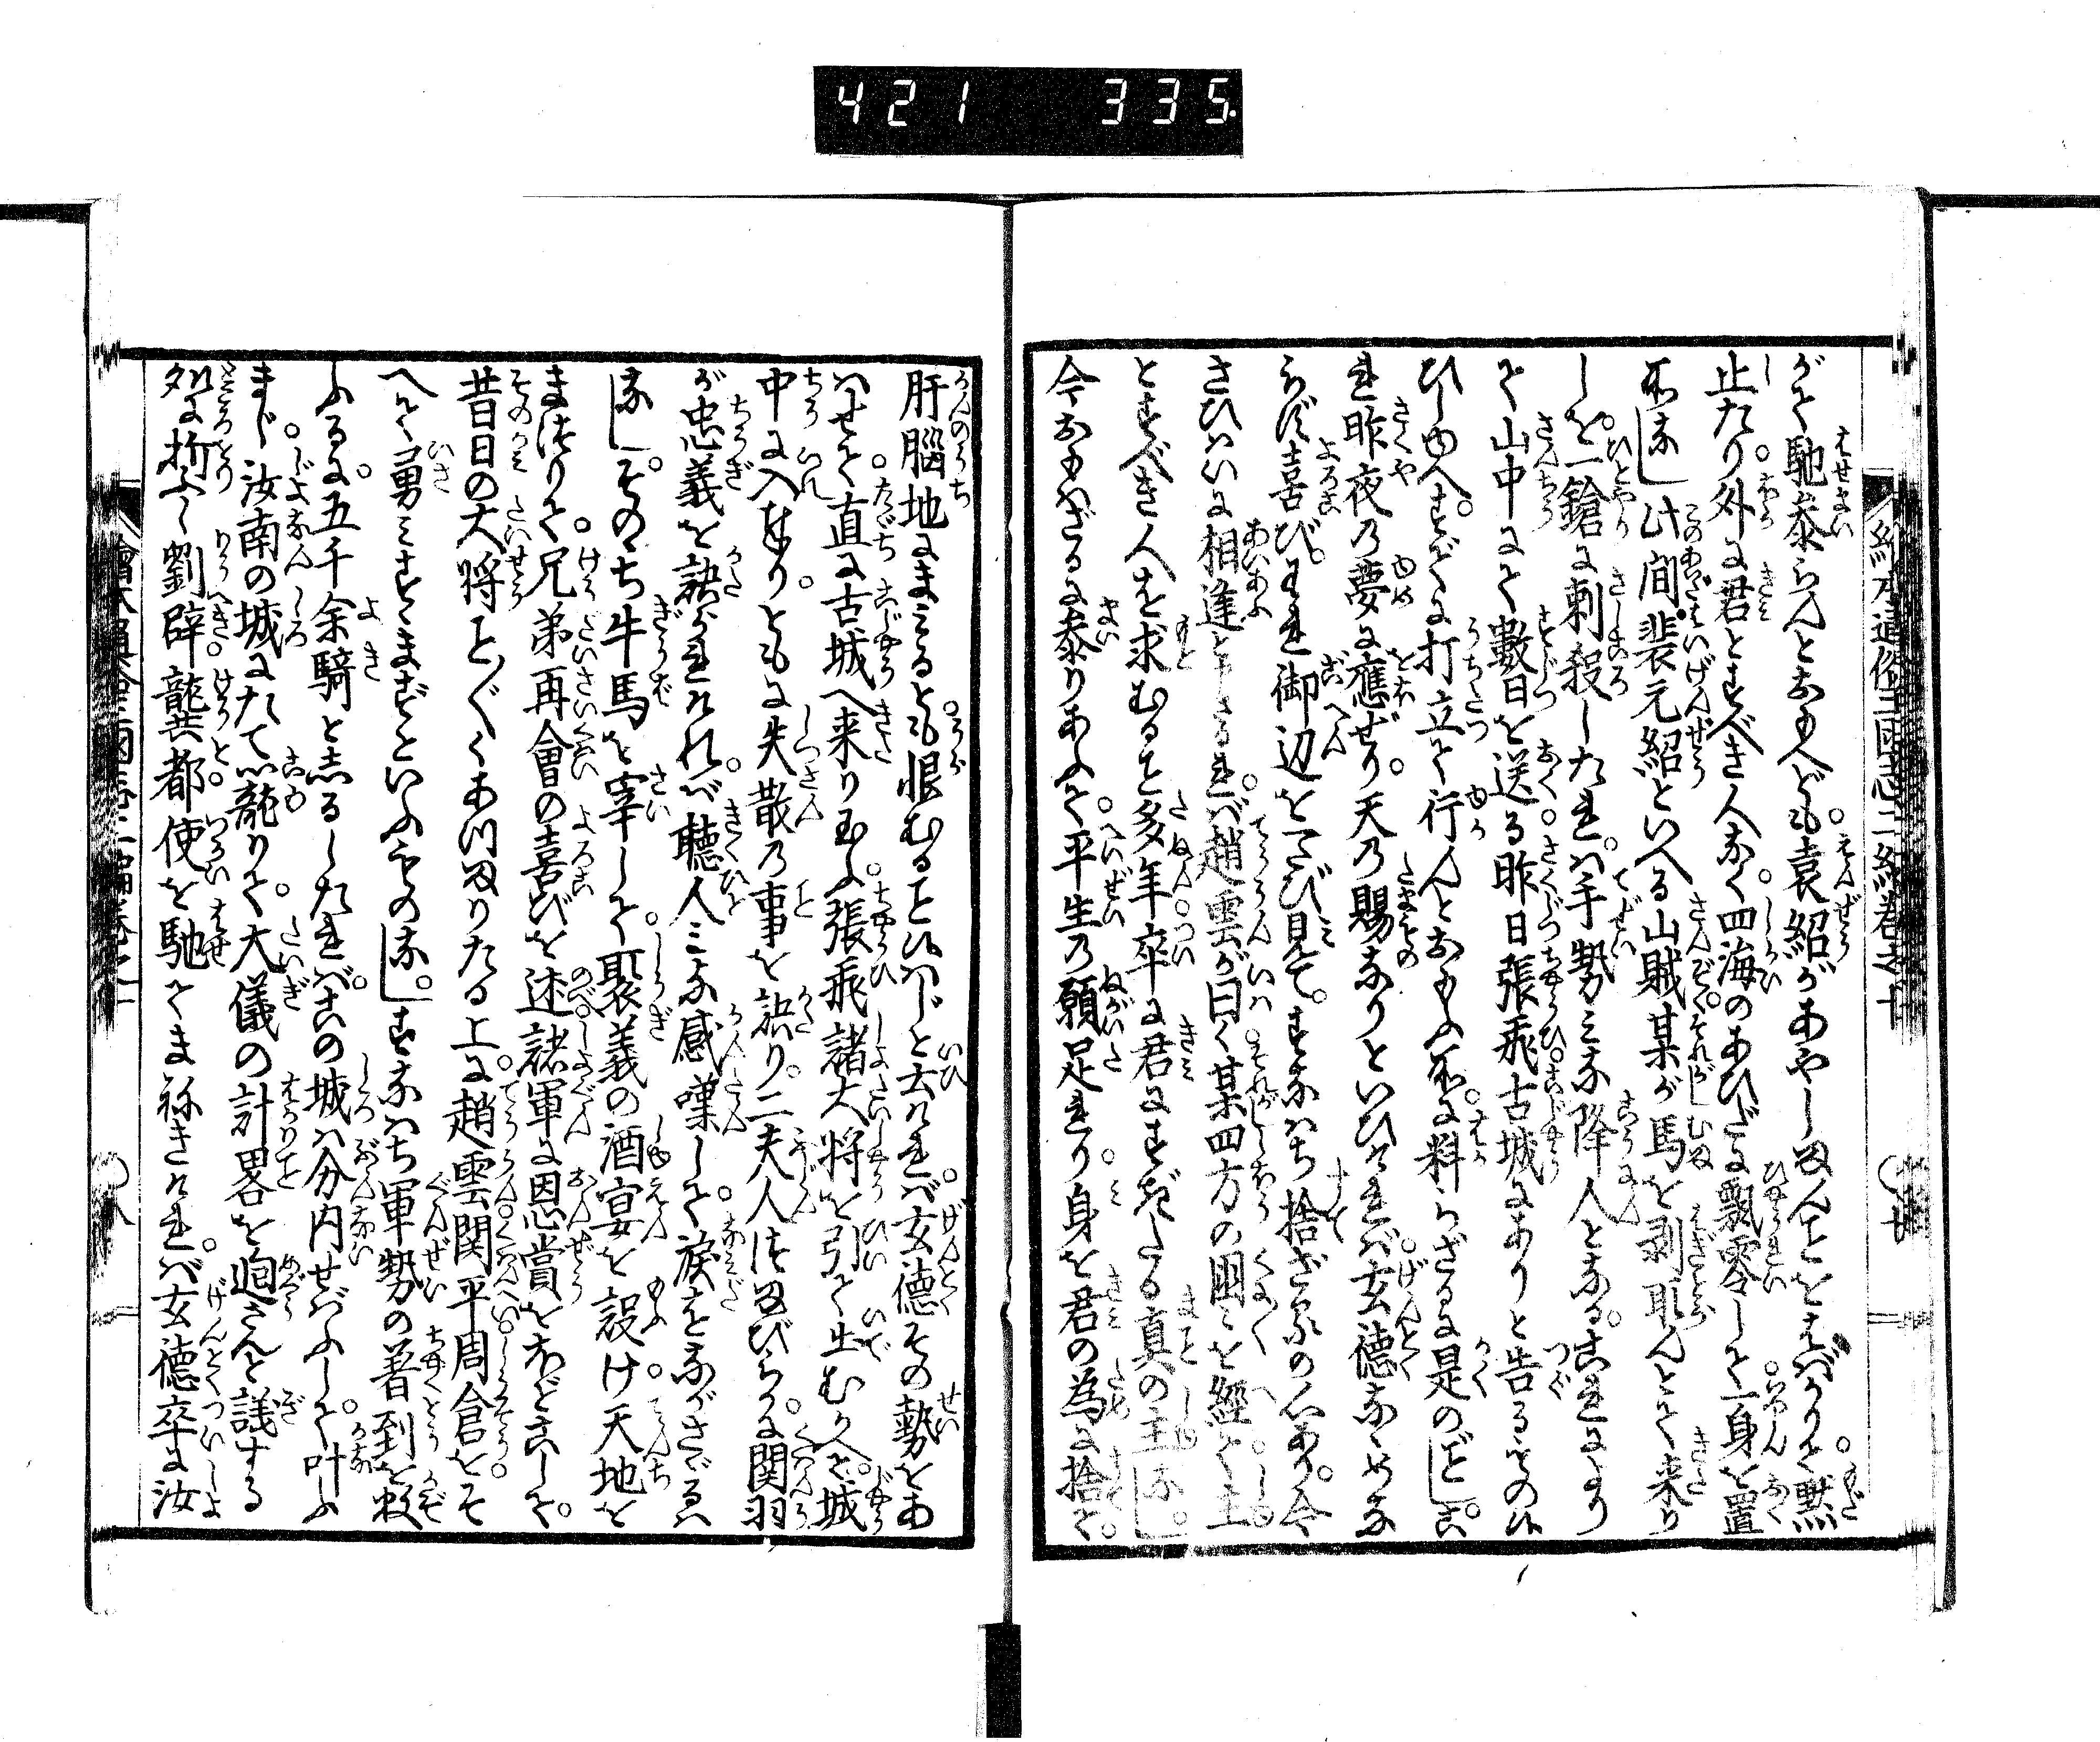 421 335.
がて馳参らんとおもへども。袁紹があやしまんことをはゞかりて黙
止たり。外に君とすべき人なく。四海のあひだに飄零して。一身を置
所なし。此間裴元紹といへる山賊。某が馬を剥取んとて来り
しを。一鎗に刺殺したれば。手勢みな降人となる。これより
て山中にて數日を送る。昨日張飛。古城にありと告るものゝ
ひしゆへ。すぐに打立て行んとおもふ所に。料らざるに是のごとし。こ
れ昨夜の夢に應ぜり。天の賜なりといひければ。玄徳なゝめな
らず喜び。われ御辺を一たび見て。すなはち捨ざるの心あり。今
さひはいに相逢とまうされば。趙雲が曰く。某四方の囲々を經て。主
とすべき人を求むること多年。卒に君にすぎたる真の主なし。
今おもはざるに参りあふて。平生の願足れり。身を君の為に捨て。
肝腦地にまみるとも。恨むることなしと云ければ。玄徳その勢をあ
はせて。直に古城へ来り玉ふ。張飛諸大将を引て出むかへ。城
中に入奉り。ともに失散の事を語り。二夫人ならびに関羽
が忠義を語られければ。聴人みな感嘆して。涙をながさゞるは
なし。そのゝち牛馬を宰して。聚義の酒宴を設け。天地を
まほりて。兄弟再會の喜びを述。諸軍に恩賞をほどこして。
昔日の大将ことごとくあつまりたる上に。趙雲。関平。周倉をそ
へて。勇みすゝまずといふものなし。すなはち軍勢の著到を数
ふるに。五千余騎としるしたれば。この城は分内せばふして。叶ふ
まじ。汝南の城にたて籠りて。大儀の計畧を廻さんと議する
処に。折ふし劉辟。龔都。使を馳てまねきければ。玄徳卒に汝